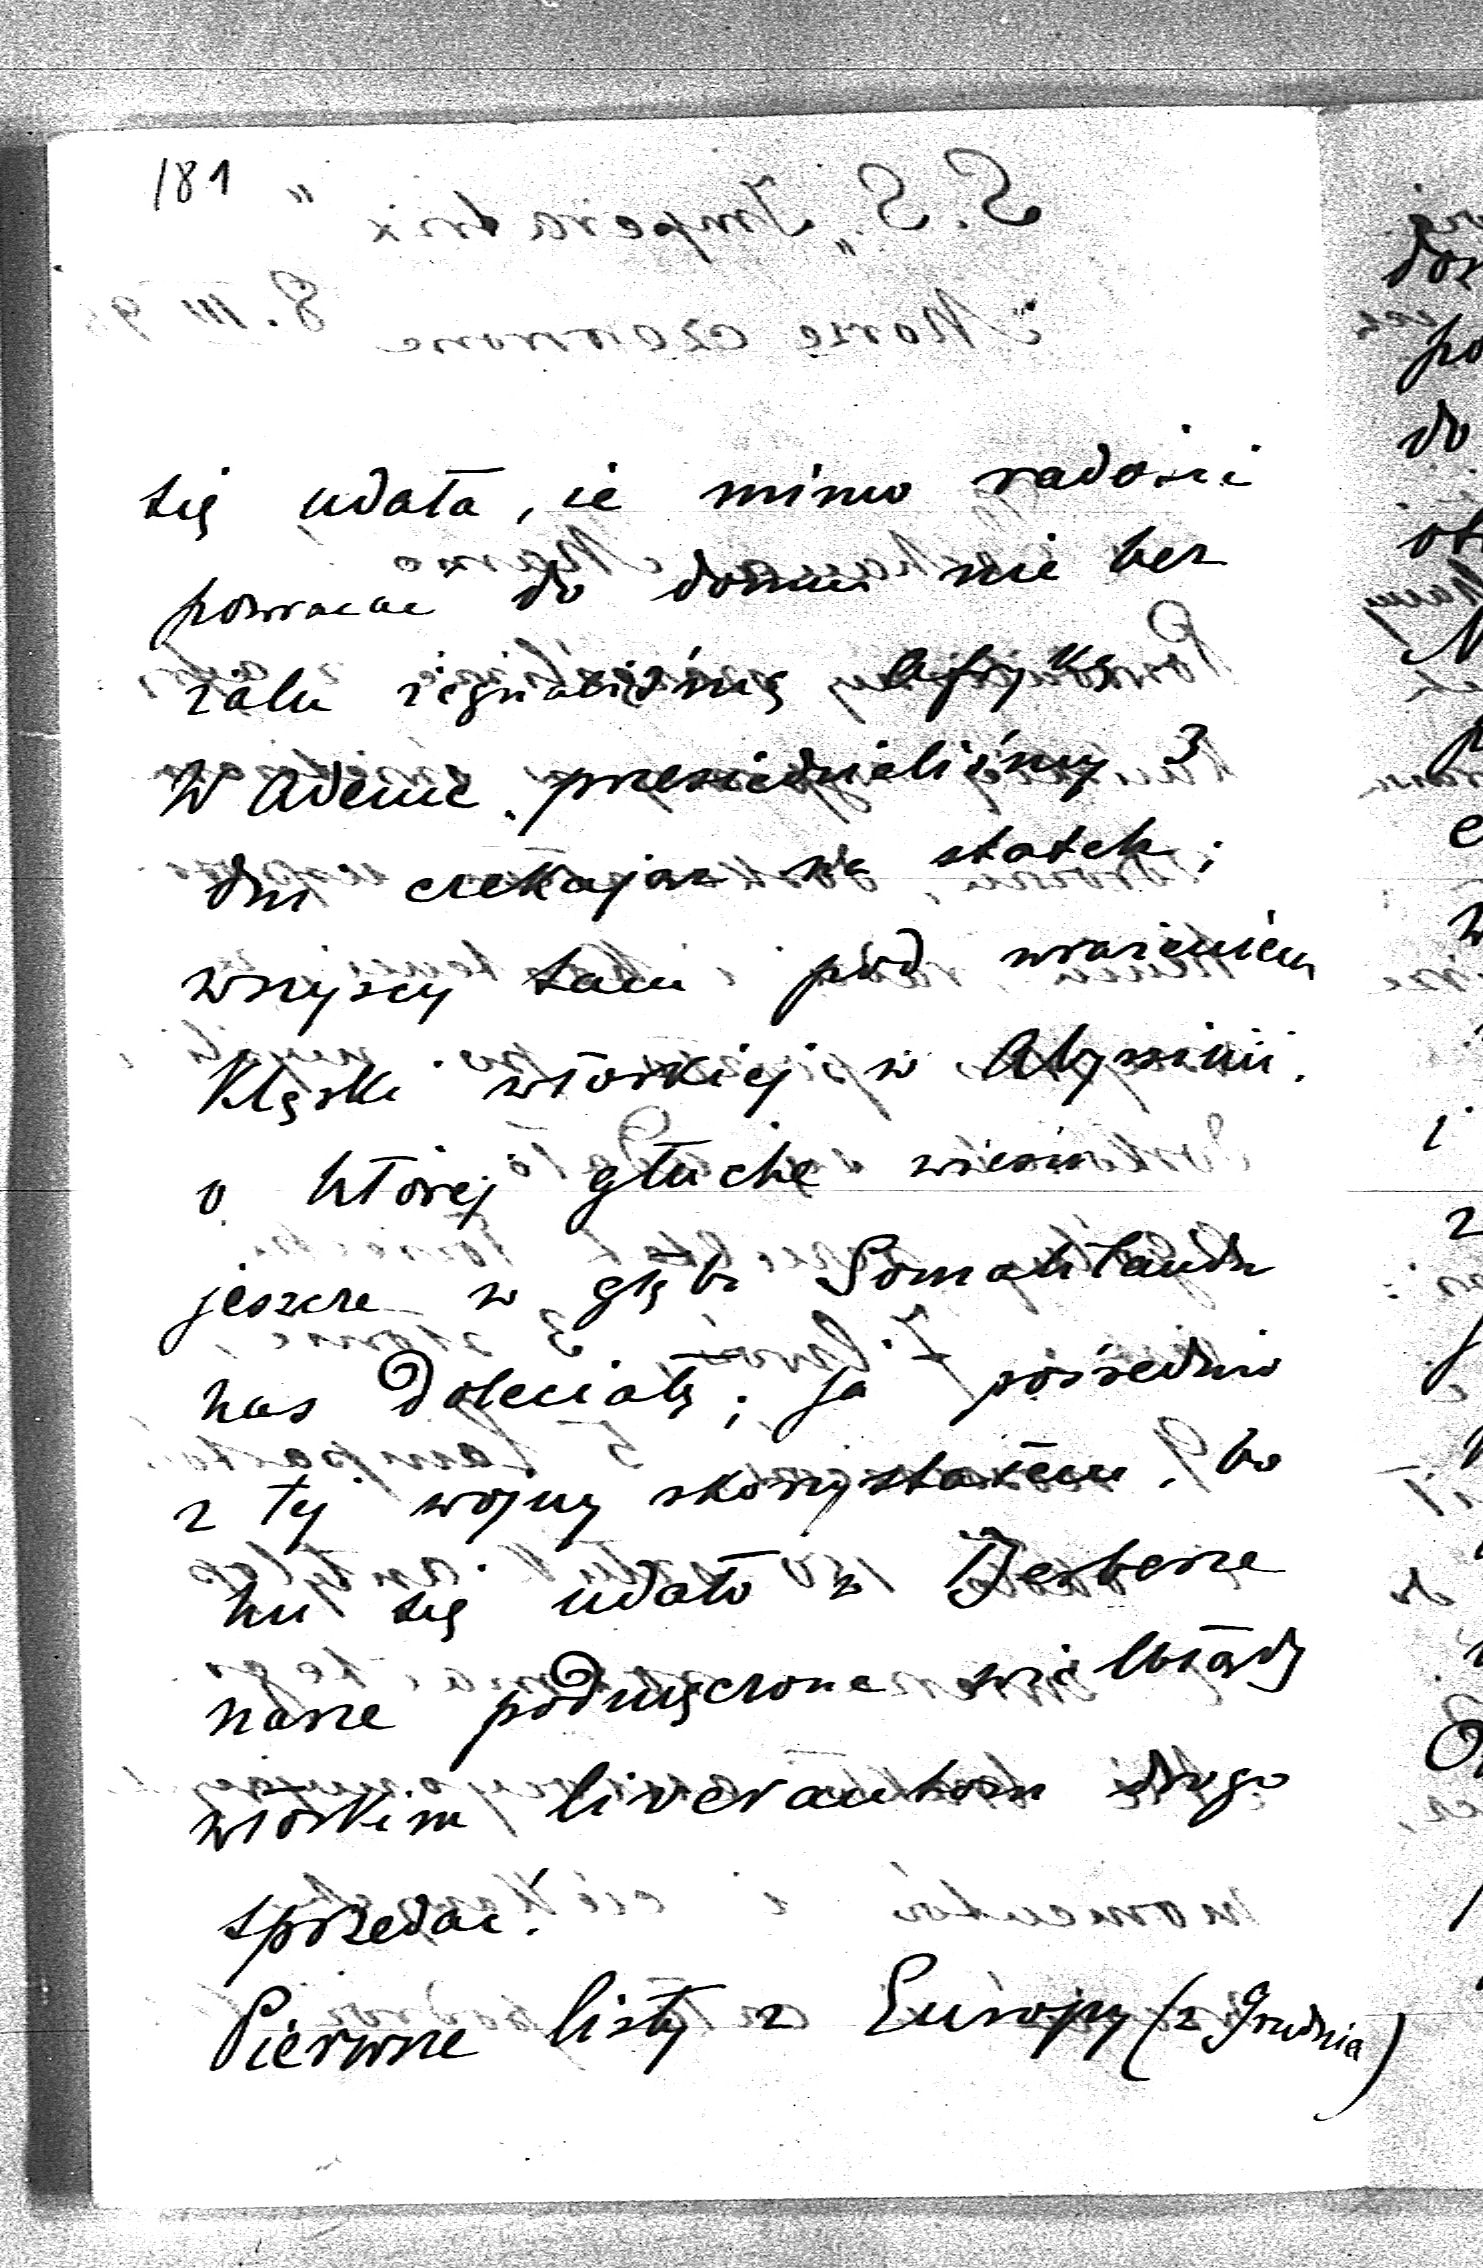 181
się udała, że mimo radości
powracać do domu nie bez
żalu żegnaliśmy Afrykę
W Adenie przesiedzieliśmy 3
dni czekając na statek;
wszyscy tam pod wrażeniem
klęski włoskiej w Abyssinii.
o której głuche wieści
jeszcze w głębi Somalilandu
nas doleciały; ja pośrednio
z tej wojny skorzystałem, bo
mi się udało w Berberze
nasze podmęczone wielbłądy
włoskim liverantom drogo
sprzedać.
Pierwsze listy z Europy (z Grudnia)